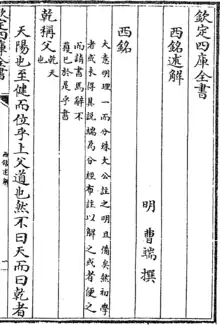 欽定四庫全書
西銘述解
明 曹端 撰
西銘
大意明理一而分殊文公註之明且備矣然初學
者或未得其說編為分經布註以解之或者便之
而請書焉辭不
獲已於是乎書
乾稱父乾天
也
天陽也至健而位乎上父道也然不曰天而曰乾者
欽定四庫全書
西銘述解
一